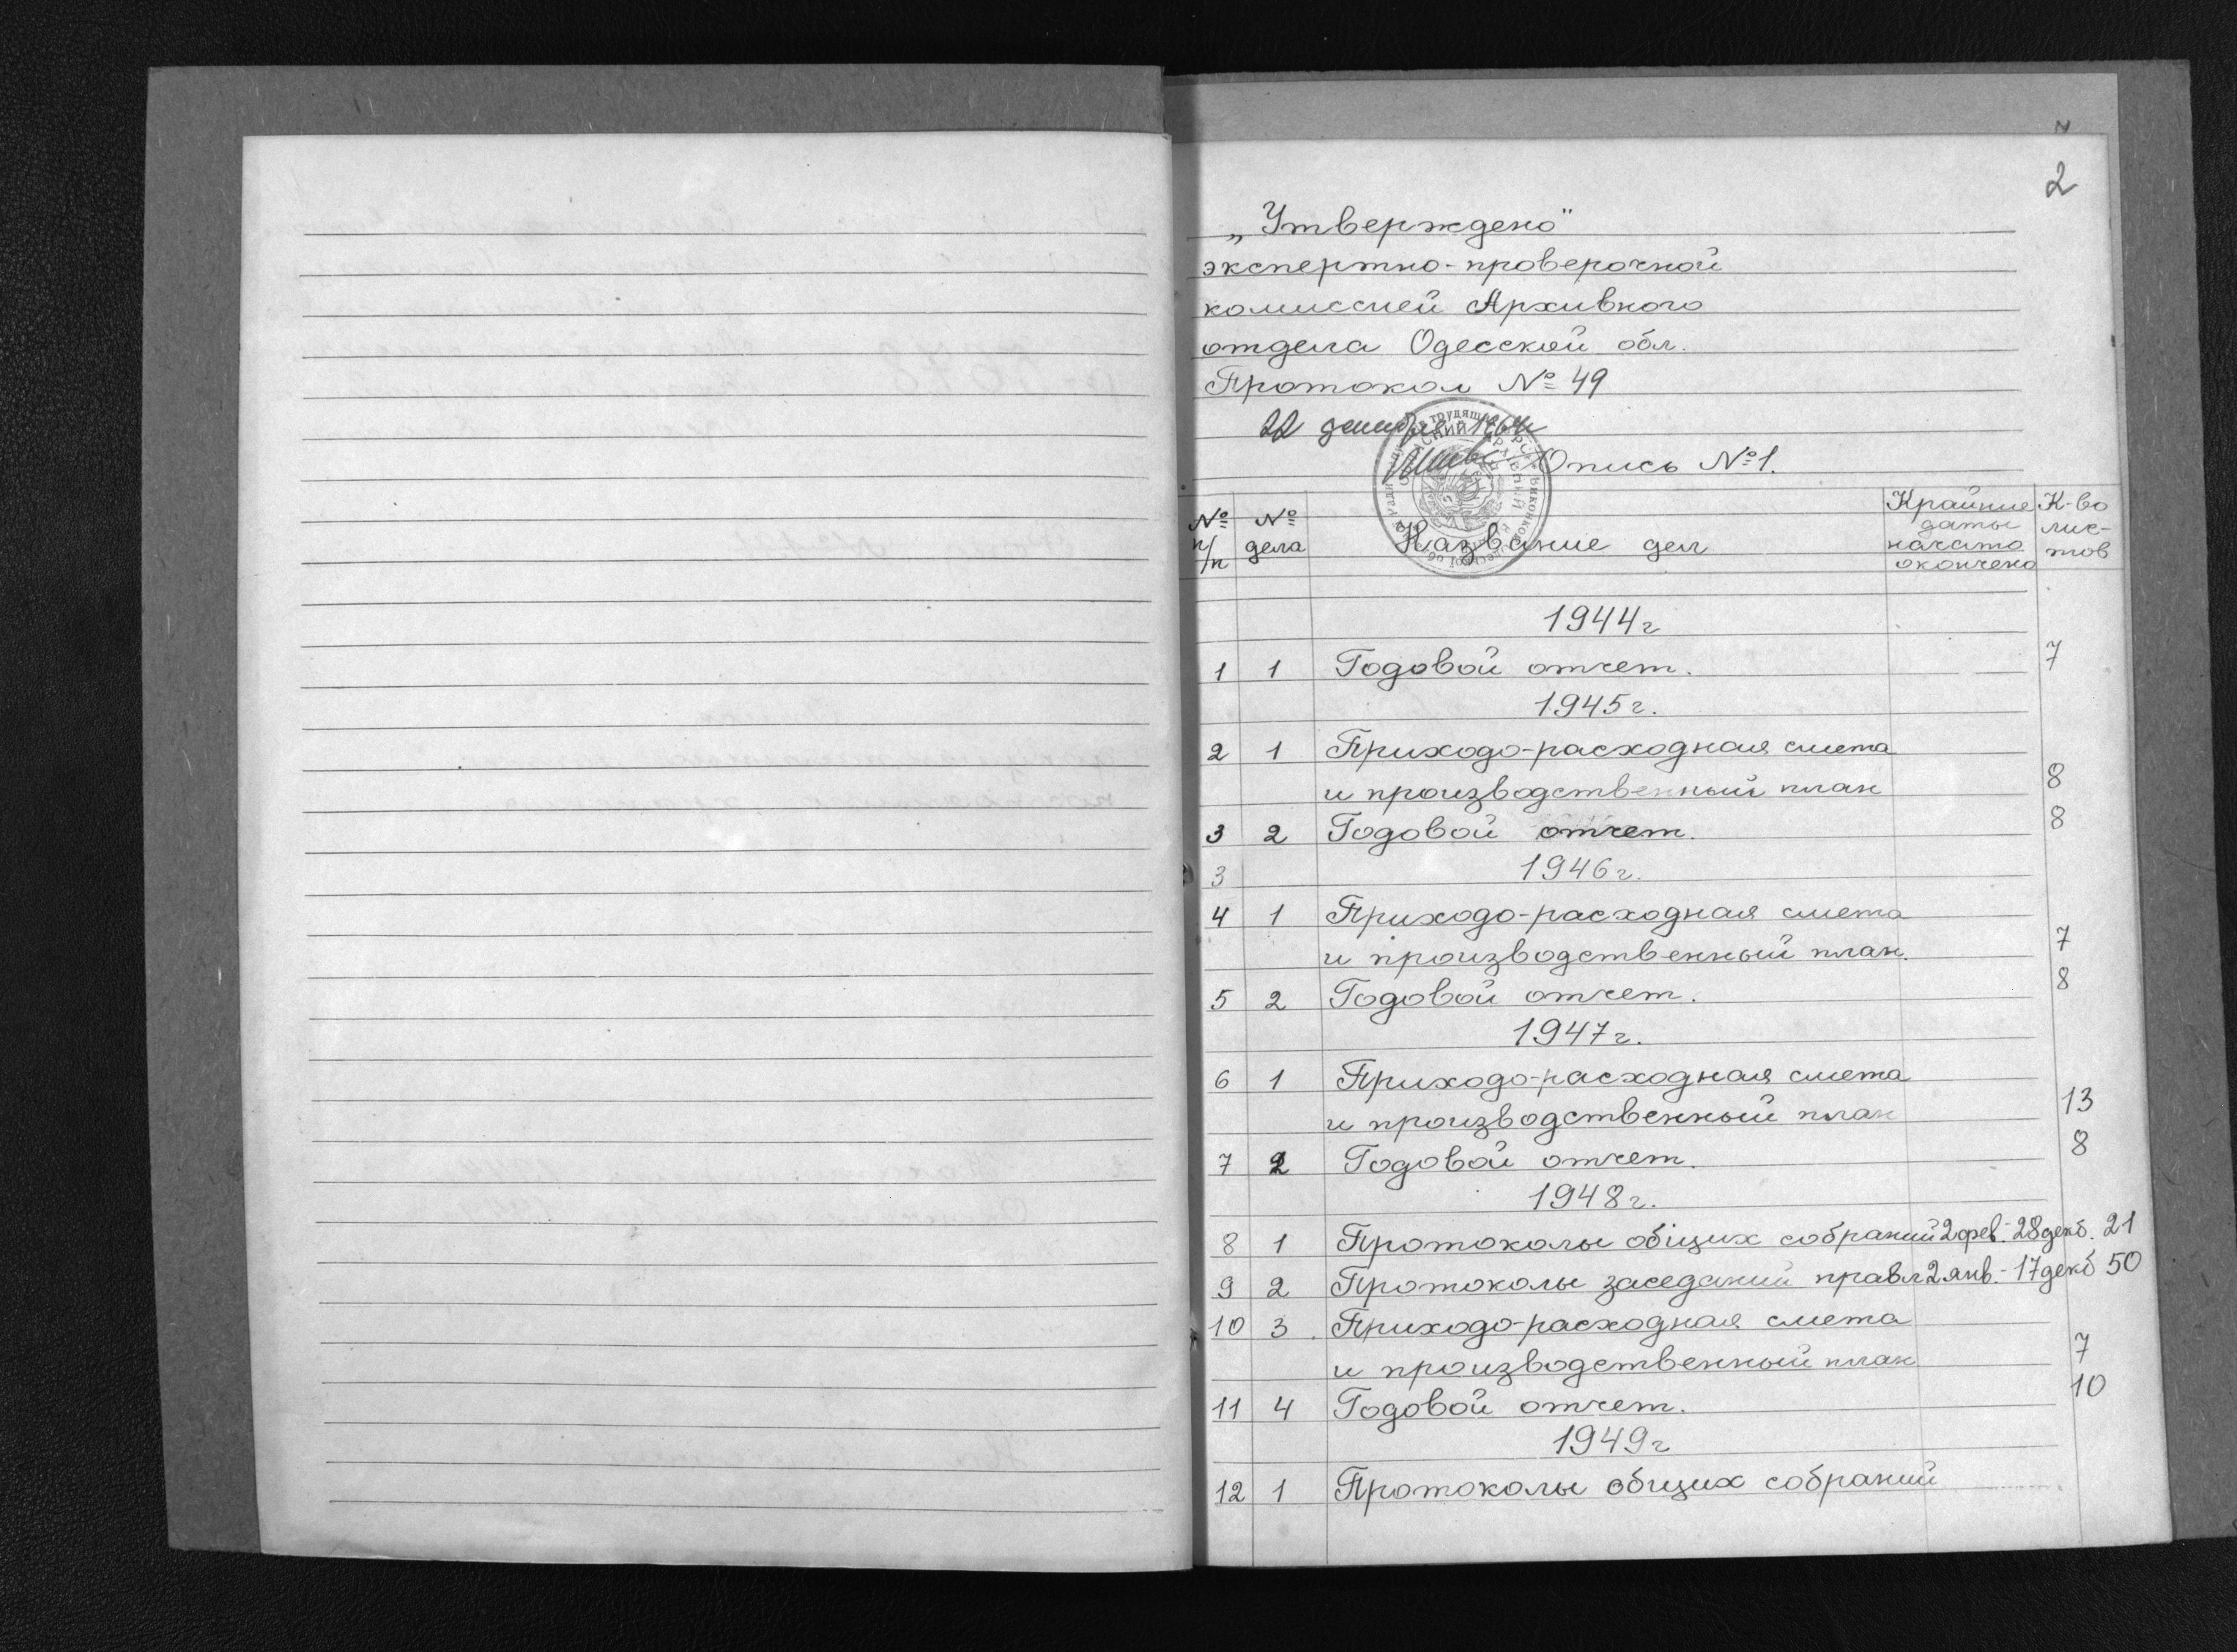 2
„Утверждено"
экспертно-проверочной
комиссией Архивного
отдела Одесской обл.
Протокол № 49
22 декабря 1964
Опись № 1.
№ п/п № дела Название дел Крайние даты начато окончено К-во лис-тов
1944 г
1 1 Годовой отчет. 7
1945 г.
2 1 Приходо-расходная смета
и производственный план 8
3 2 Годовой отчет. 8
3 1946 г.
4 1 Приходо-расходная смета
и производственный план. 7
5 2 Годовой отчет. 8
1947 г.
6 1 Приходо-расходная смета
и производственный план 13
7 2 Годовой отчет. 8
1948 г.
8 1 Протоколы общих собраний 2 фев.-28 декб. 21
9 2 Протоколы заседаний правл 2 янв.-17 декб 50
10 3 Приходо-расходная смета
и производственный план 7
11 4 Годовой отчет. 10
1949 г
12 1 Протоколы общих собраний